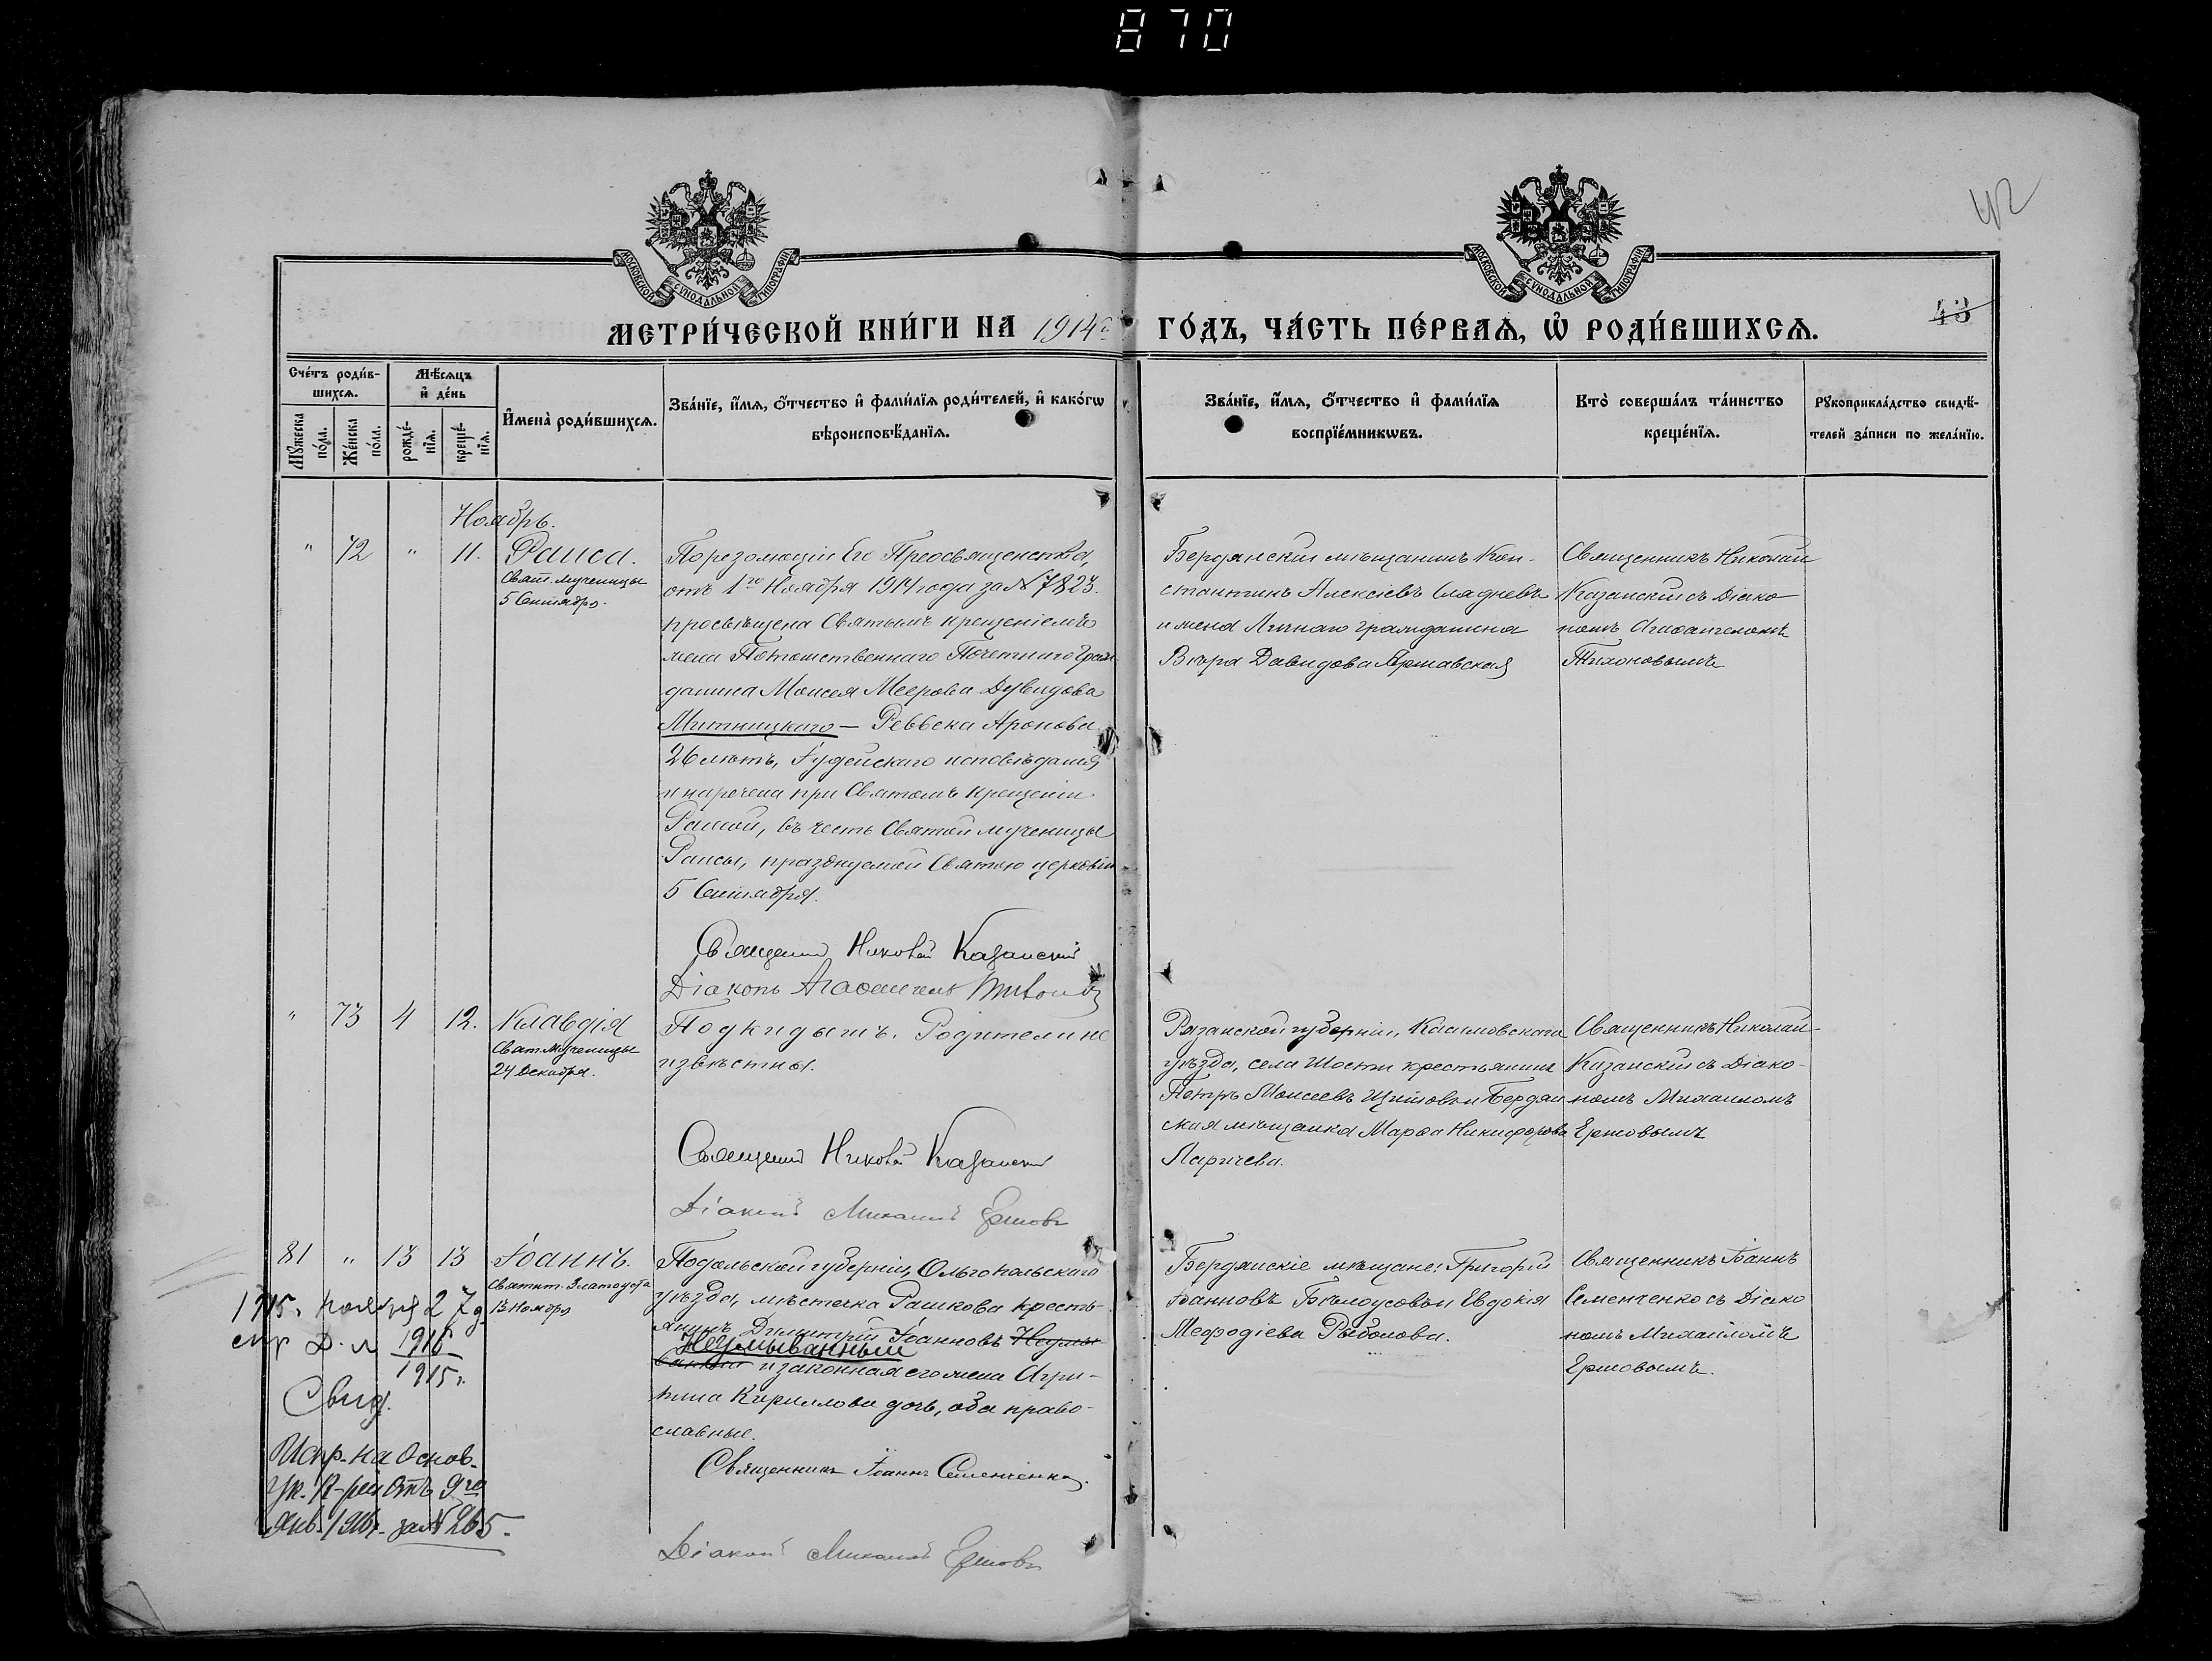 870
42
МОСКОВСКОЙ СѴНОДАЛЬНОЙ ТИПОГРАФІИ
МОСКОВСКОЙ СѴНОДАЛЬНОЙ ТИПОГРАФІИ
43
МЕТРИ́ЧЕСКОЙ КНИ́ГИ НА 1914 ГО́ДЪ, ЧА́СТЬ ПЕ́РВАѦ, Ѡ҆ РОДИ́ВШИХСѦ.
Сче́тъ роди́в-
шихсѧ.
Мꙋжеска по́ла.
Же́нска по́ла.
Мѣ́сѧцъ
и҆ де́нь
рожде́-
нїѧ.
креще́-
нїѧ.
И҆мена̀ роди́вшихсѧ.
Зва́нїе, и҆́мѧ, ѻ҆́тчество и҆ фамил́їѧ роди́телей, и҆ како́гѡ
вѣроисповѣ́данїѧ.
Зва́нїе, и҆́мѧ, ѻ҆́тчество и҆ фами́лїѧ
воспрїе́мникѡвъ.
Кто̀ соверша́лъ та́инство
креще́нїѧ.
Рꙋкоприкла́дство свидѣ́-
телей за́писи по жела́нїю.
Ноябрь.
" 72 " 11. Раиса.
Свят. мученицы
5 Сентября.
По резолюціи Его Преосвященства,
отъ 1го Ноября 1914 года за № 7823.
просвѣщена Святымъ крещеніемъ
жена Потомственнаго Почетнаго Граж
данина Моисея Меерова Давидова
Митницкаго – Реввека Аронова
26 лѣтъ, Іудейскаго исповѣданія
и наречена при Святомъ крещеніи
Раисой, въ честь Святой мученицы
Раисы, празднуемой Святою церковію
5 Сентября.
Священникъ Николай Казанскій
Діаконъ Агаѳангелъ Тихоновъ
Бердянскій мѣщанинъ Кон-
стантинъ Алексѣевъ Сладневъ
и жена Личнаго гражданина
Вѣра Давидова Яржавская
Священникъ Николай
Казанскій съ Діако
номъ Агаѳангеломъ
Тихоновымъ
" 73 4 12. Клавдія
Свят. мученицы
24 Декабря.
Подкидышъ. Родители не
извѣстны.
Священникъ Николай Казанскій
Діаконъ Михаилъ Ершовъ
Рязанской губерніи, Касимовскаго
уѣзда, села Шости крестьянинъ
Петръ Моисеевъ и Бердян
ская мѣщанка Марѳа Никифорова
Ларичева.
Священникъ Николай
Казанскій съ Діако-
номъ Михаиломъ
Ершовымъ
81 " 13 13 Іоаннъ.
Святит. Златоуста
13 Ноября
Подольской губерніи, Ольгопольскаго
уѣзда, мѣстечка Рашкова кресть-
янинъ Димитрій Іоанновъ
Неумыванный
и законная его жена Агри-
пина Кириллова дочь, оба право-
славные.
Священникъ Іоаннъ Семенченко.
Діаконъ Михаилъ Ершовъ
Бердянскіе мѣщане: Григорій
Іоанновъ Бѣлоусовъ и Евдокія
Меѳодіева Рыбалова.
Священникъ Іоаннъ
Семенченко съ Діако
номъ Михаиломъ
Ершовымъ.
1915г. ноября 27 д.
1915г.
Свид.
Испр. на основ.
ук. К-ріи отъ 9го
янв. 1916г. за № 265.